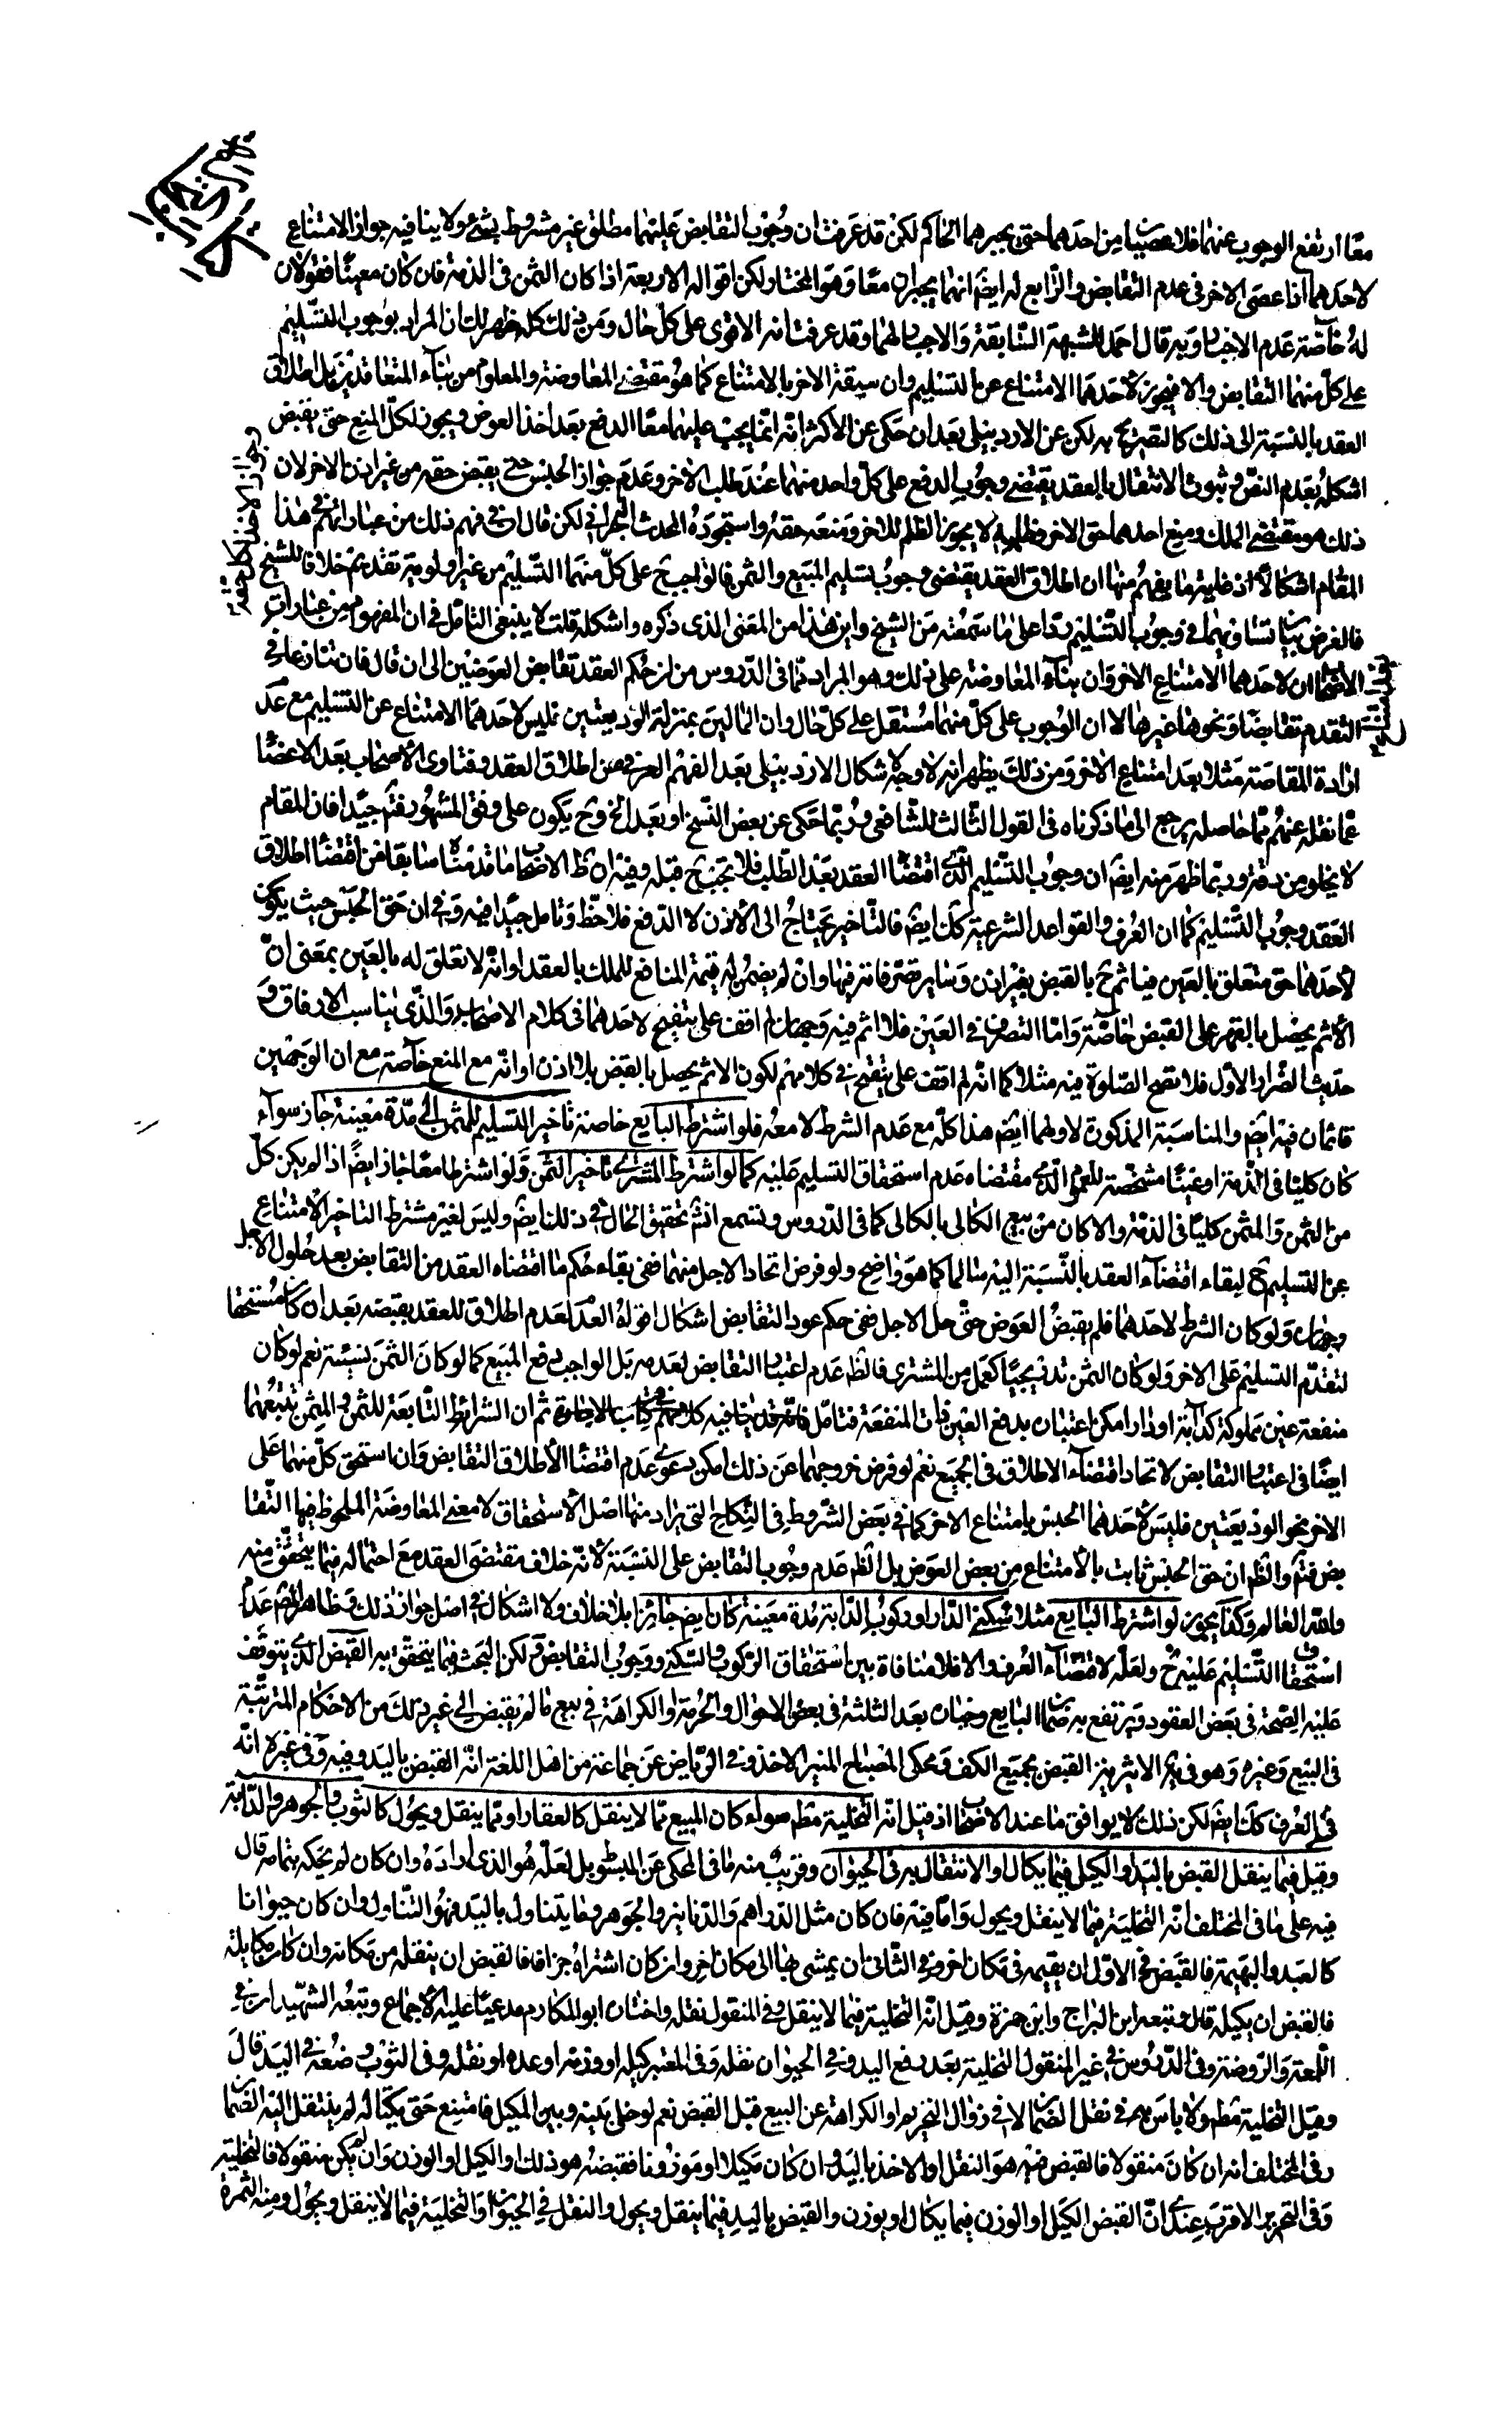 معًا ارتفع الوجوب عنهما فلا عصيان من احدهما حتى يجبرهما الحاكم لكن قد عرفت ان وجوب التقابض عليهما مطلق غير مشروط بشئ ولا ينافيه جواز الامتناع
لاحدهما اذا عصى الاخر في عدم التقابض والرابع له ايضا انهما يجبران معًا وهو المختار ولكن اقواله الاربعة اذا كان الثمن في الذمة فان كان معينًا فقولان
له خاصة عدم الاجبار وبه قال احمد للشبهة السابقة والاجبار لهما وقد عرفت انه الاقوى على كل حال ومن ذلك كله ظهر لك ان المراد بوجوب التسليم
على كل منهما التقابض والا فيجوز لاحدهما الامتناع عن التسليم وان سبقه الاخر بالامتناع كما هو مقتضى المعاوضة والمعلوم من بناء المتعاقدين بل اطلاق
العقد بالنسبة الى ذلك كالتصريح به لكن عن الاردبيلى بعد ان حكى عن الاكثر انه انما يجب عليهما معًا الدفع بعد اخذ العوض ويجوز لكل المنع حتى يقبض
اشكله بعدم النص وثبوت الانتقال بالعقد يقتضى وجوب الدفع على كل واحد منهما عند طلب الاخر وعدم جواز الحبس حتى يقبض حقه من غير اذن الاخر لان
ذلك هو مقتضى الملك ومنع احدهما حق الاخر وظلمه لا يجوز الظلم للاخر ومنعه حقه واستجوده المحدث البحرانى لكن قال ان في فهم ذلك من عباراتهم في هذا
المقام اشكالًا اذ غاية ما يفهم منها ان اطلاق العقد يقتضى وجوب تسليم المبيع والثمن فالواجب ح على كل منهما التسليم من غير اولوية تقديم خلافا للشيخ
فالغرض بيان تساويهما في وجوب التسليم ردا على ما سمعته من الشيخ واين هذا من المعنى الذى ذكره واشكله قلت لا ينبغى التامل في ان المفهوم من عبارات
الاصحاب ان لاحدهما الامتناع الاخر وان بناء المعاوضة على ذلك وهو المراد مما في الدروس من ان حكم العقد تقابض العوضين الى ان قال فان تنازعا في
التقدم تقابضا ونحوها غيرها لا ان الوجوب على كل منهما مستقل على كل حال وان المالين بمنزلة الوديعتين فليس لاحدهما الامتناع عن التسليم مع عدم
ارادة المقاصة مثلا بعد امتناع الاخر ومن ذلك يظهر انه لا وجه لاشكال الاردبيلى بعد الفهم العرفى من اطلاق العقد وفتاوى الاصحاب بعد الاغضاء
عما نقله عنهم مما حاصله يرجع الى ما ذكرناه في القول الثالث للشافعى وربما حكى عن بعض النسخ او بعد الخ وح يكون على وفق المشهور فتم جيدا فان المقام
لا يخلو من دقة وربما ظهر منه ايضا ان وجوب التسليم الذى اقتضاه العقد بعد الطلب فلا يجب ح قبله وفيه ان ظ الاصحاب ما قدمناه سابقا من اقتضاء اطلاق
العقد وجوب التسليم كما ان العرف والقواعد الشرعية كك ايضا فالتاخير يحتاج الى الاذن لا الدفع فلاحظ وتامل جيدا فيه وفي ان حق الحبس حيث يكون
لاحدهما حق متعلق بالعين فياثم ح بالقبض بغير اذن وساير تصرفاته فيها وان لم يضمن له قيمة المنافع للملك بالعقد او انه لا تعلق له بالعين بمعنى ان
الاثم يحصل بالقهر على القبض خاصة واما التصرف في العين فلا اثم فيه وجهان لم اقف على تنقيح لاحدهما في كلام الاصحاب والذى يناسب الارفاق و
حديث الضرار الاول فلا تصح الصلوة فيه مثلا كما انه لم اقف على تنقيح في كلامهم لكون الاثم يحصل بالقبض بلا اذن او انه مع المنع خاصة مع ان الوجهين
قائمان فيه ايضا والمناسبة المذكورة لاولهما ايضا هذا كله مع عدم الشرط لا معه فلو اشترط البايع خاصة تاخير التسليم للمثمن الى مدة معينة جاز سواء
كان كليا في الذمة او عينًا مشخصة للعموم الذى مقتضاه عدم استحقاق التسليم عليه كما لو اشترط المشترى تاخير الثمن ولو اشترطا معًا جاز ايضًا اذا لم يكن كل
من الثمن والمثمن كليًا في الذمة والا كان من بيع الكالى بالكالى كما في الدروس وتسمع انش تحقيق الحال في ذلك ايضا وليس لغير مشترط التاخير الامتناع
عن التسليم ح لبقاء اقتضاء العقد بالنسبة اليه سالما كما هو واضح ولو فرض اتحاد الاجل منهما ففى بقاء حكم ما اقتضاه العقد من التقابض بعد حلول الاجل
وجهان ولو كان الشرط لاحدهما فلم يقبض العوض حتى حل الاجل ففى حكم عود التقابض اشكال اقواه العدم لعدم اطلاق للعقد يقتضيه بعد ان كان مستحقا
لتقدم التسليم على الاخر ولو كان الثمن تدريجيًا كعمل من المشترى فالظ عدم اعتبار التقابض لعدمه بل الواجب دفع المبيع كما لو كان الثمن نسيئة نعم لو كان
منفعة عين مملوكة كدابة او دار امكن اعتباره بدفع العين ذات المنفعة فتامل فانه قد ينافيه كلامهم في كتاب الاجارة ثم ان الشرائط التابعة للثمن والمثمن تتبعهما
ايضًا في اعتبار التقابض لاتحاد اقتضاء الاطلاق في الجميع نعم لو فرض خروجهما عن ذلك امكن دعوى عدم اقتضاء الاطلاق التقابض وان استحق كل منهما على
الاخر نحو الوديعتين فليس لاحدهما الحبس بامتناع الاخر كما في بعض الشروط في النكاح التى يراد منها اصل الاستحقاق لا معنى المعاوضة الملحوظ فيها التقا
بض فتم والظ ان حق الحبس ثابت بالامتناع من بعض العوض بل الظ عدم وجوب التقابض على النسبة لانه خلاف مقتضى العقد مع احتماله فيما يتحقق منه
والله العالم وكذا يجوز لو اشترط البايع مثلا سكنى الدار او ركوب الدابة مدة معينة كان ايضا جائزا بلا خلاف ولا اشكال في اصل جواز ذلك وظاهر المص عدم
استحقاق التسليم عليه ح ولعله لاقتضاء العرف والا فلا منافاة بين استحقاق الركوب والسكنى ووجوب التقابض لكن البحث فيما يتحقق به القبض الذى يتوقف
عليه الصحة في بعض العقود ويرتفع به ضمان البايع وخياره بعد الثلثة في بعض الاحوال والحرمة او الكراهة في بيع ما لم يقبض الى غير ذلك من الاحكام المترتبة
في البيع وغيره وهو في ية الاثيرية القبض بجميع الكف ومحكى المصباح المنير الاخذ وفي الرياض عن جماعة من اهل اللغة انه القبض باليد وفيه وفى غيره انه
في العرف كك ايضا لكن ذلك لا يوافق ما عند الاصحاب اذ قيل انه التخلية مطم سواء كان المبيع مما لا ينقل كالعقار او مما ينقل ويحول كالثوب والجوهر والدابة
وقيل فيما ينقل القبض باليد او الكيل فيما يكال او الانتقال به في الحيوان وقريب منه ما في المحكى عن المبسوط بل لعله هو الذى اراده وان كان لم يحكه بتمامه قال
فيه على ما في المختلف انه التخلية فيما لا ينقل ويحول واما فيه فان كان مثل الدراهم والدنانير والجوهر وما يتناول باليد فهو التناول وان كان حيوانا
كالعبد والبهيمة فالقبض في الاول ان يقيمه في مكان اخر وفي الثانى ان يمشى بها الى مكان اخر وان كان اشتراه جزافا فالقبض ان ينقله من مكانه وان كان مكايلة
فالقبض ان يكيله قال وتبعه ابن البراج وابن حمزة وقيل انه التخلية فيما لا ينقل وفي المنقول نقله واختاره ابو المكارم مدعيًا عليه الاجماع وتبعه الشهيدان في
اللمعة والروضة وفي الدروس في غير المنقول التخلية بعد رفع اليد وفي الحيوان نقله وفى المعتبر كيله او وزنه او عده او نقله وفى الثوب وضعه في اليد قال
وقيل التخلية مطم ولا باس به في نقل الضمان لا في زوال التحريم او الكراهة عن البيع قبل القبض نعم لو خلى بينه وبين المكيل فامتنع حتى يكتاله لم ينتقل اليه الضمان
وفى المختلف انه ان كان منقولا فالقبض فيه هو النقل او الاخذ باليد وان كان مكيلا او موزونا فقبضه هو ذلك او الكيل او الوزن وان لم يكن منقولا فالتخلية
وفى التحرير الاقرب عندى ان القبض الكيل او الوزن فيما يكال او يوزن والقبض باليد فيما ينقل ويحول والنقل في الحيوان والتخلية فيما لا ينقل ويحول ومنه الثمرة